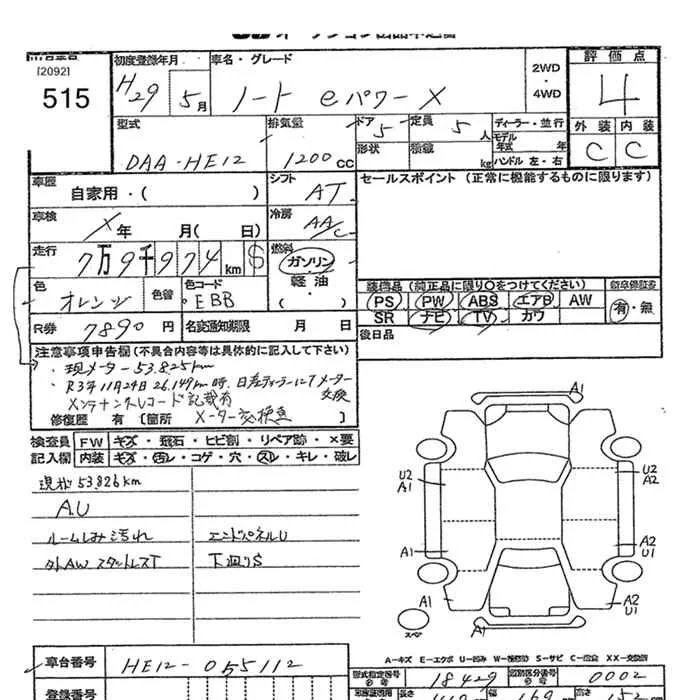 [2092]
515
初度登録年月
H29 5月
車名・グレード
ノート eパワーX
2WD
・
4WD
評価点
4
外装 内装
C C
型式
DAA-HE12
排気量
1200cc
ドア
5
定員
5人
形状
積載
kg
ディーラー・並行
モデル
年式 年
ハンドル 左・右
車歴
自家用・( )
シフト
AT
セールスポイント (正常に機能するものに限ります)
車検
X年 月( 日)
冷房
AAC
走行
7万9千974km $
燃料
ガソリン
軽油
・
( )
色
オレンジ
色替
色コード
EBB
装備品(純正品に限り○をつけてください)
PS PW ABS エアB AW
SR ナビ TV カワ
新車保証書
有・無
R券
7890円
名変通知期限 月 日
後日品
注意事項申告欄(不具合内容等は具体的に記入して下さい)
・現メーター53.825km
・R3年11月24日 26.149km時、日産ディーラーにてメーター交換
メンテナンスレコード記載有
修復歴 有 [箇所 メーター交換車 ]
検査員 FW キズ・飛石・ヒビ割・リペア跡・×要
記入欄 内装 キズ・汚レ・コゲ・穴・スレ・キレ・破レ
現状53.826km
A.U
ルームしみ汚れ エンドパネルU
外AWスタットレスT 下廻りS
A1
U2
A1
U2
A2
A1
A2
U1
A1
A2
U1
スペア
A1
A-キズ E-エクボ U-凹み W-補修跡 S-サビ C-腐食 XX-交換済
車台番号
HE12-055112
登録番号
型式指定番号
18429
類別区分番号
0002
長さ
幅
高さ